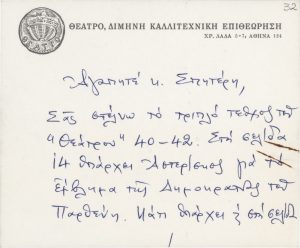 32
ΘΕΑΤΡΟ, ΔΙΜΗΝΗ ΚΑΛΛΙΤΕΧΝΙΚΗ ΕΠΙΘΕΩΡΗΣΗ
ΧΡ. ΛΑΔΑ 5-7, ΑΘΗΝΑ 124
ΘΕΑΤΡΟ
Ἀγαπητέ κ. Σπητέρη,
Σᾶς στέλνω τό τριπλό τεῦχος τοῦ
"Θεάτρου" 40-42. Στή σελίδα
14 ὑπάρχει Ἀστερίσκος γιά τό
Ἔμβλημα τῆς Δημοκρατίας τοῦ
Παρθένη. Κάτι ὑπάρχει ἐπί σελίδ